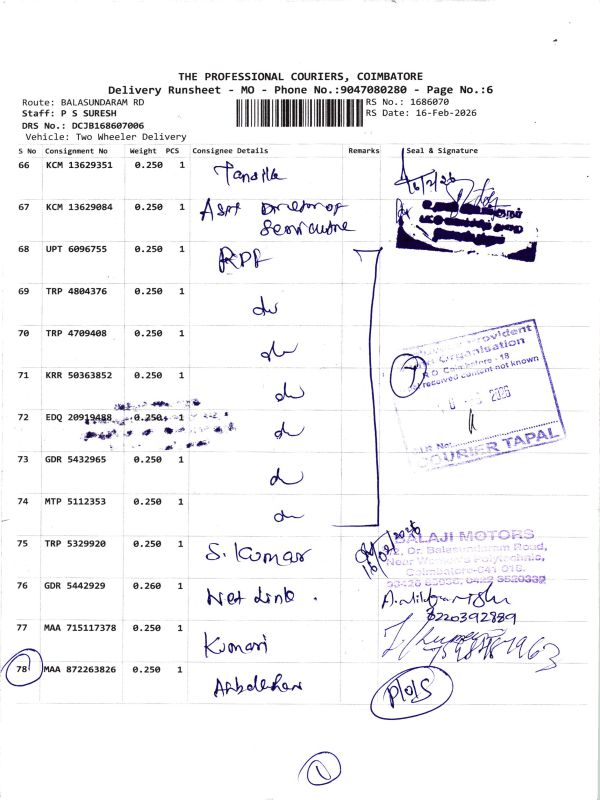 THE PROFESSIONAL COURIERS, COIMBATORE
Delivery Runsheet - MO - Phone No.:9047080280 - Page No.:6
Route: BALASUNDARAM RD
RS No.: 1686070
Staff: P S SURESH
RS Date: 16-Feb-2026
DRS No.: DCJB168607006
Vehicle: Two Wheeler Delivery
S No Consignment No Weight PCS Consignee Details Remarks Seal & Signature
66 KCM 13629351 0.250 1
16/2/26
67 KCM 13629084 0.250 1 Asst Director of
Sericulture
68 UPT 6096755 0.250 1 RPF
69 TRP 4804376 0.250 1 do
70 TRP 4709408 0.250 1 do
71 KRR 50363852 0.250 1 do
72 EDQ 20919488 0.250 1 do
73 GDR 5432965 0.250 1 do
74 MTP 5112353 0.250 1 do
Provident
Organisation
R.O. Coimbatore - 18
received content not known
7
2026
COURIER TAPAL
75 TRP 5329920 0.250 1 S. Kumar
16/02/2026
BALAJI MOTORS
Dr. Balasundaram Road,
Near Women's Polytechnic,
Coimbatore-641 018.
76 GDR 5442929 0.260 1 Net Link.
6220392889
77 MAA 715117378 0.250 1 Kumari
78 MAA 872263826 0.250 1
P/O/S
1